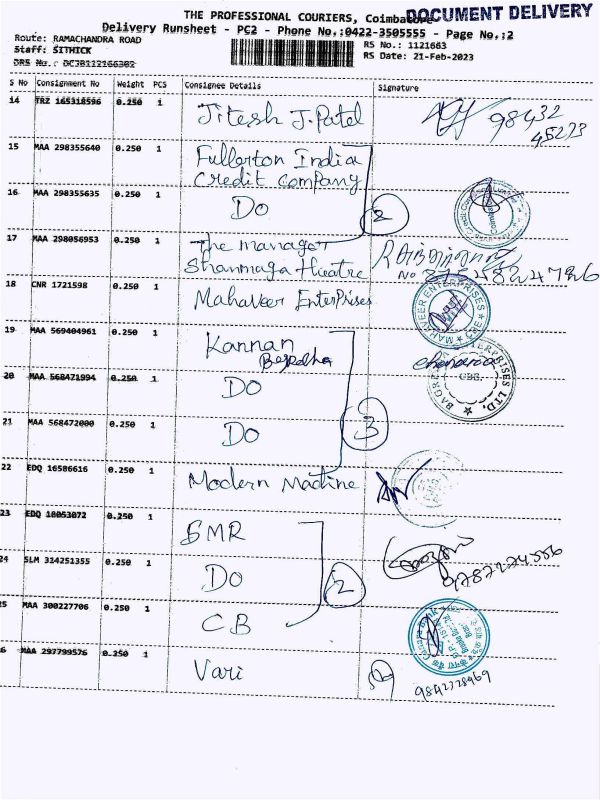 THE PROFESSIONAL COURIERS, Coimbatore
DOCUMENT DELIVERY
Delivery Runsheet - PC2 - Phone No.:0422-3505555 - Page No.:2
Route: RAMACHANDRA ROAD
RS No.: 1121663
Staff: SITHICK
RS Date: 21-Feb-2023
DRS No.: DCJB112166302
S No Consignment No Weight PCS Consignee Details Signature
14 TRZ 165318596 0.250 1 Jitesh J. Patel 98432
45273
15 MAA 298355640 0.250 1 Fullerton India
Credit Company
16 MAA 298355635 0.250 1 DO 2
17 MAA 298056953 0.250 1 The manager
Shanmaga theatre No
18 CNR 1721598 0.250 1 Mahaveer EnterPrises MAHAVEER ENTERPRISES
19 MAA 569404961 0.250 1 Kannan
20 MAA 568471994 0.250 1 DO
21 MAA 568472000 0.250 1 DO 3
22 EDQ 16586616 0.250 1 Modern Machine
23 EDQ 18053072 0.250 1 SMR
24 SLM 314251355 0.250 1 DO 2 9787224556
25 MAA 300227706 0.250 1 CB
26 MAA 297799576 0.350 1 Vari 9842728969